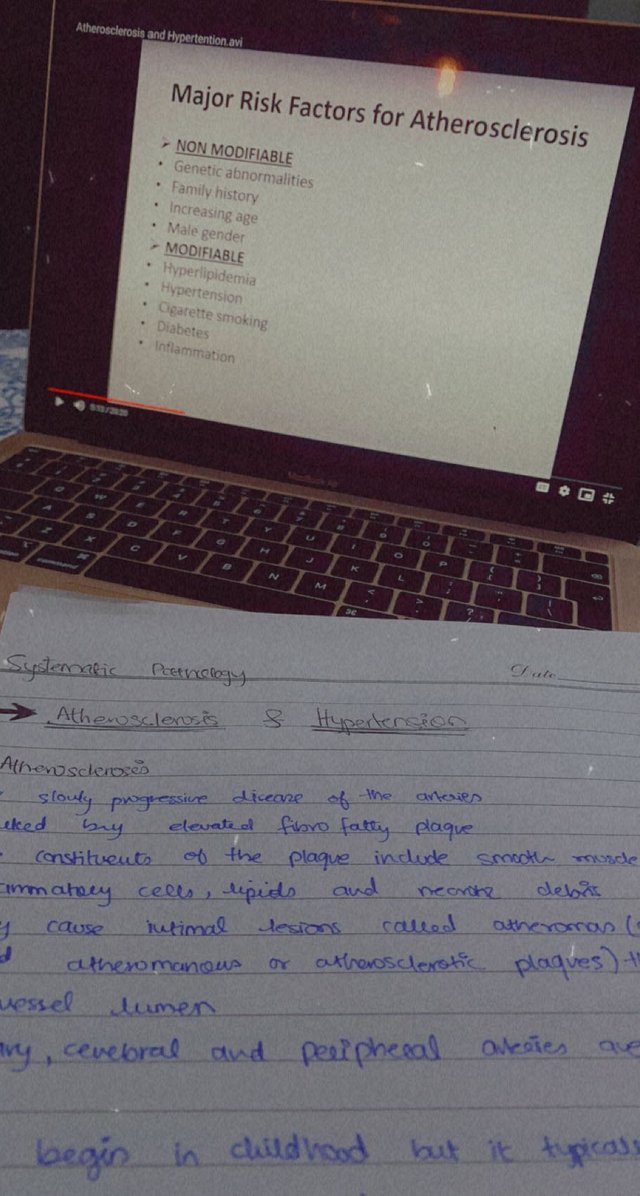 Atherosclerosis and Hypertention.avi
Major Risk Factors for Atherosclerosis
➢ NON MODIFIABLE
• Genetic abnormalities
• Family history
• Increasing age
• Male gender
➢ MODIFIABLE
• Hyperlipidemia
• Hypertension
• Cigarette smoking
• Diabetes
• Inflammation
Systematic Pathology
Date
→ Atherosclerosis & Hypertension
Atherosclerosis
slowly progressive disease of the arteries
by elevated fibro fatty plaque
constituents of the plaque include smooth muscle
cells, lipids and necrotic debris
cause intimal lesions called atheromas
atheromanous or atherosclerotic plaques)
vessel lumen
cerebral and peripheral arteries are
begin in childhood but it